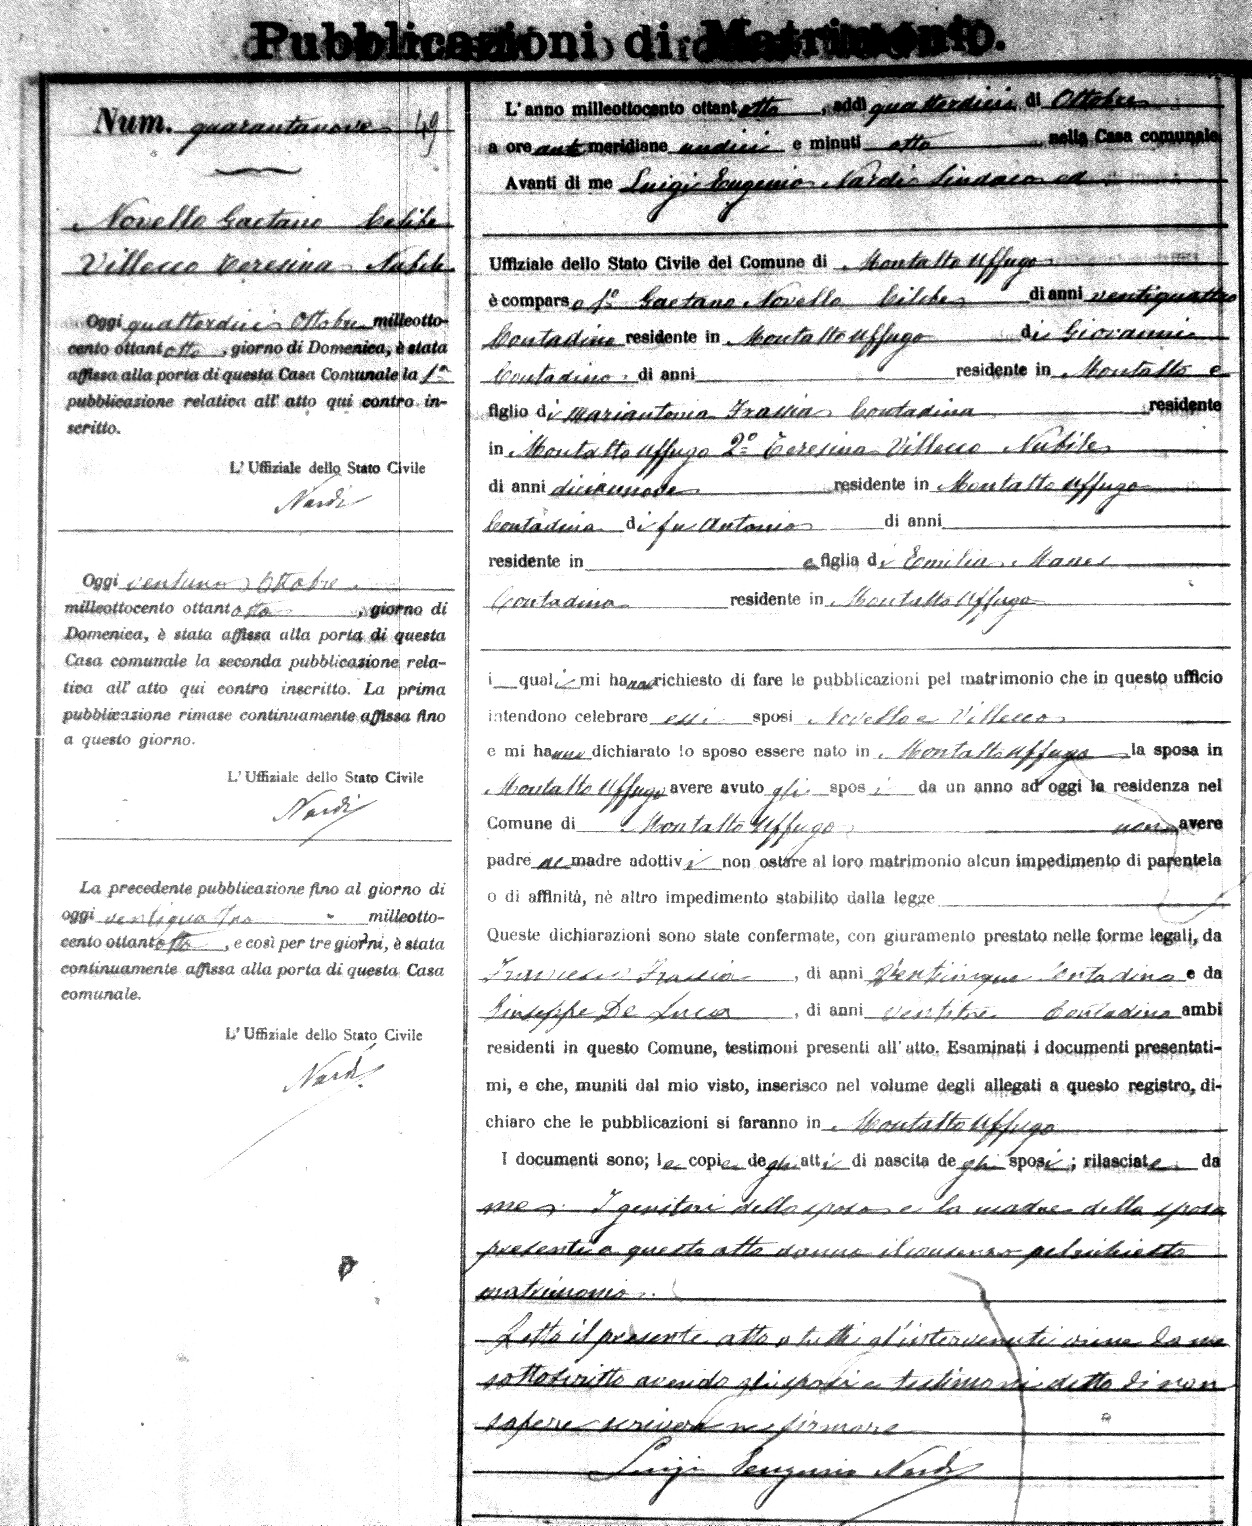 Pubblicazioni di Matrimonio.
Num. quarantanove 49
Novello Gaetano Celibe
Villecco Teresina Nubile
Oggi quattordici Ottobre milleotto-
cento ottantotto, giorno di Domenica, è stata
affissa alla porta di questa Casa Comunale la 1a
pubblicazione relativa all' atto qui contro in-
scritto.
L' Uffiziale dello Stato Civile
Nardi
Oggi ventuno Ottobre
milleottocento ottantotto, giorno di
Domenica, è stata affissa alla porta di questa
Casa comunale la seconda pubblicazione rela-
tiva all' atto qui contro inscritto. La prima
pubblicazione rimase continuamente affissa fino
a questo giorno.
L' Uffiziale dello Stato Civile
Nardi
La precedente pubblicazione fino al giorno di
oggi ventiquattro milleotto-
cento ottantotto, e così per tre giorni, è stata
continuamente affissa alla porta di questa Casa
comunale.
L' Uffiziale dello Stato Civile
Nardi
L' anno milleottocento ottantotto, addì quattordici di Ottobre
a ore antemeridiane undici e minuti otto nella Casa comunale
Avanti di me Luigi Eugenio Nardi Sindaco ed
Uffiziale dello Stato Civile del Comune di Montalto Uffugo
è comparso 1o Gaetano Novello Celibe di anni ventiquattro
Contadino residente in Montalto Uffugo di Giovanni
Contadino di anni residente in Montalto e
figlio di Mariantonia Frassia Contadina residente
in Montalto Uffugo 2o Teresina Villecco Nubile
di anni diciannove residente in Montalto Uffugo
Contadina di fu Antonio di anni
residente in e figlia di Emilia Manes
Contadina residente in Montalto Uffugo
i quali mi hanno richiesto di fare le pubblicazioni pel matrimonio che in questo ufficio
intendono celebrare essi sposi Novello e Villecco
e mi hanno dichiarato lo sposo essere nato in Montalto Uffugo la sposa in
Montalto Uffugo avere avuto gli sposi da un anno ad oggi la residenza nel
Comune di Montalto Uffugo non avere
padre ne madre adottivi non ostare al loro matrimonio alcun impedimento di parentela
o di affinità, nè altro impedimento stabilito dalla legge
Queste dichiarazioni sono state confermate, con giuramento prestato nelle forme legali, da
Francesco Frassia, di anni Venticinque Contadino e da
Giuseppe De Luca, di anni ventitre Contadino ambi
residenti in questo Comune, testimoni presenti all'atto. Esaminati i documenti presentati-
mi, e che, muniti dal mio visto, inserisco nel volume degli allegati a questo registro, di-
chiaro che le pubblicazioni si faranno in Montalto Uffugo
I documenti sono; le copie degli atti di nascita degli sposi; rilasciate da
me. I genitori dello sposo e la madre della sposa
presenti a questo atto danno il consenso pel richiesto
matrimonio.
Letto il presente atto a tutti gl'intervenuti viene da me
sottoscritto avendo gli sposi e testimoni detto di non
sapere scrivere ne firmare
Luigi Eugenio Nardi